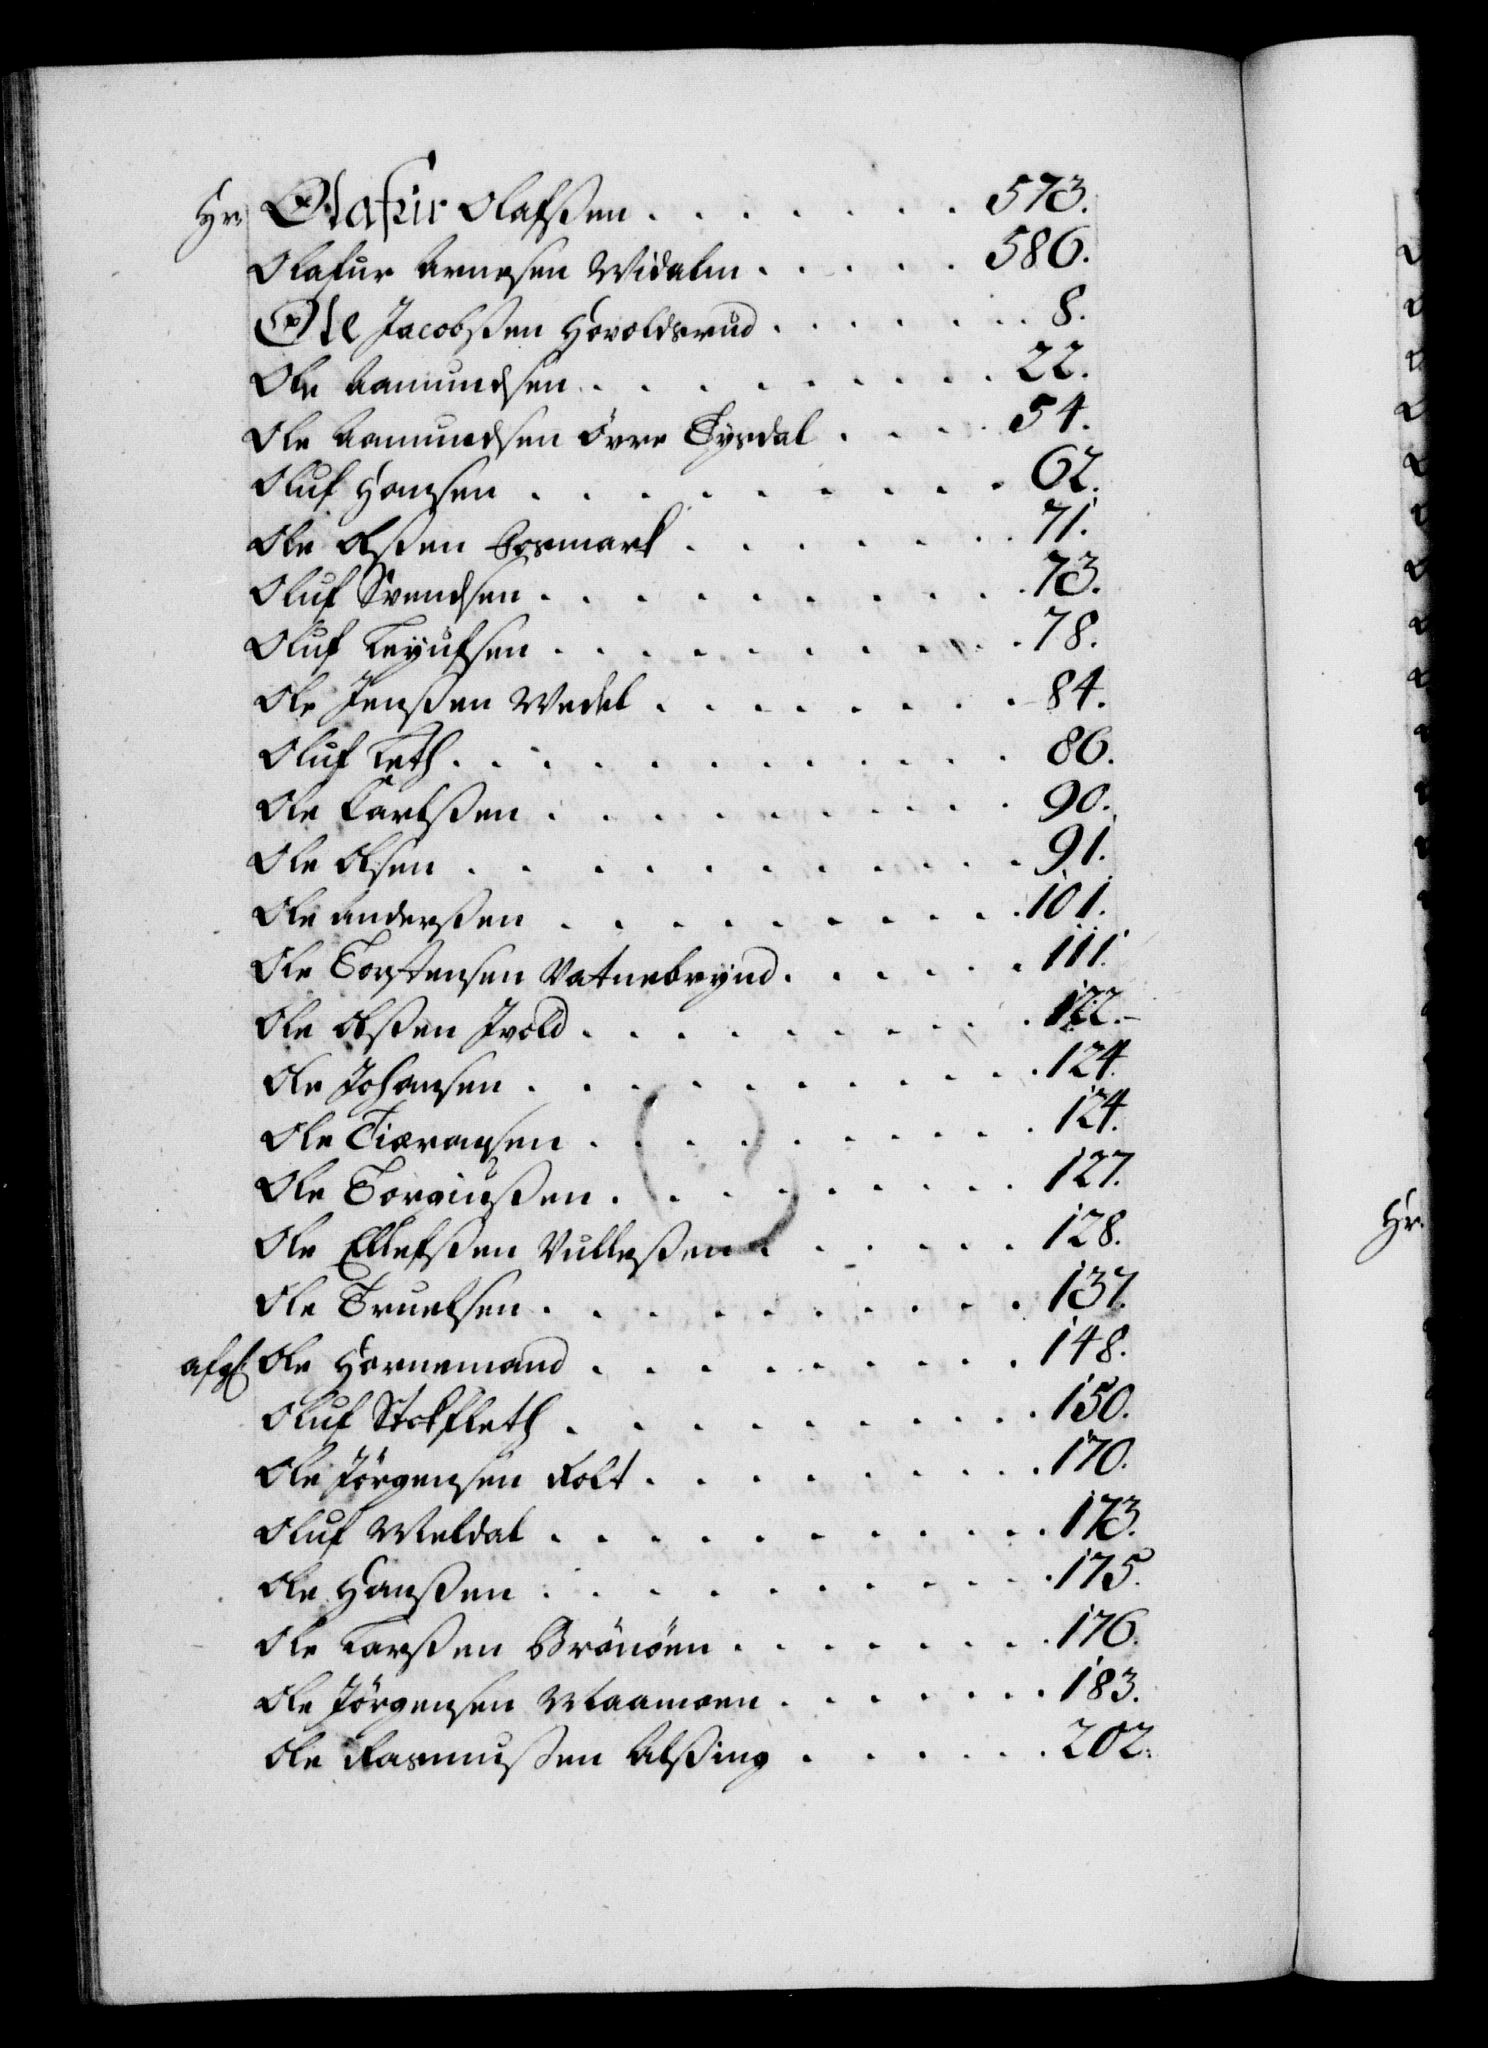 Hr. Olafur Olafssen . . . . . . . 573.
Olafur Arnesen Widalm . . . . . 586.
Ole Jacobssen Hovoldsrud . . . . . . . 8.
Ole Aamundsen . . . . . . . . 22.
Ole Aamundsen övre Tysdal . . . . 54.
Oluf Hansen . . . . . . . . . 62.
Ole Olssen Fosmark . . . . . . . 71.
Oluf Svendsen . . . . . . . . . 73.
Oluf . . . . . . . . . 78.
Ole Jenssen Wedel . . . . . . . 84.
Oluf Leth . . . . . . . . . . 86.
Ole Carlssen . . . . . . . . . 90.
Ole Olsen . . . . . . . . . . 91.
Ole Anderssen . . . . . . . . . 101.
Ole Torstensen Vatnebrynd . . . . . . 111.
Ole Olssen Ivold . . . . . . . . . 122.
Ole Johansen . . . . . . . . . . 124.
Ole Tiæransen . . . . . . . . . 124.
Ole Torgiussen . . . . . . . . . 127.
Ole Ellefssen Vullessen . . . . . . 128.
Ole Truelsen . . . . . . . . . . 137.
afg. Ole Hornemand . . . . . . . . 148.
Oluf Stokfleth . . . . . . . . . 150.
Ole Jörgensen Holt . . . . . . . . 170.
Oluf Meldal . . . . . . . . . . 173.
Ole Hanssen . . . . . . . . . . 175.
Ole Larssen Brönöen . . . . . . . 176.
Ole Jörgensen Maamoen . . . . . . . 183.
Ole Rasmussen Alssing . . . . . . 202.
Hr.